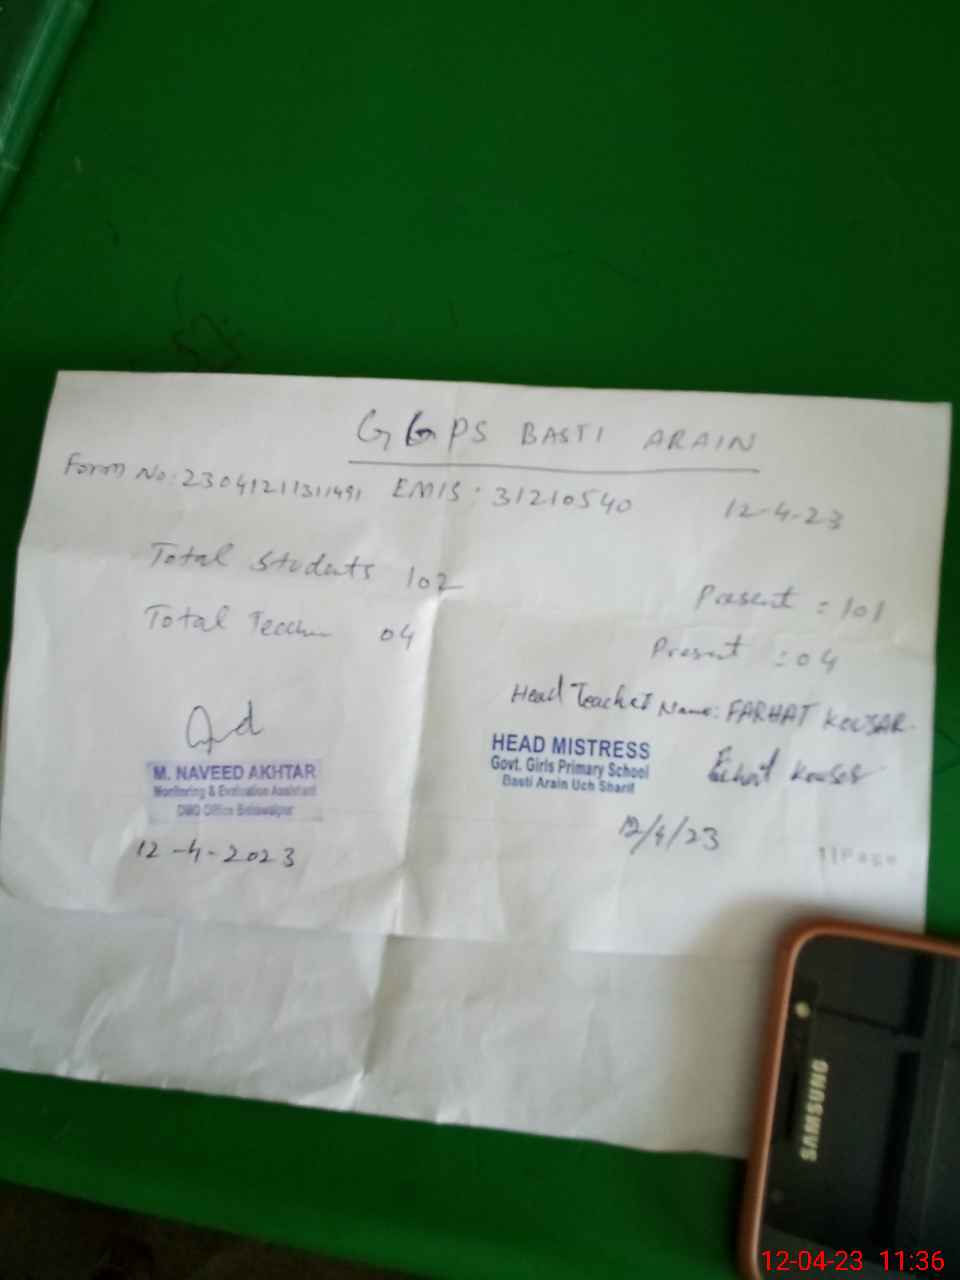 GGPS BASTI ARAIN
Form No: 23041211311491 EMIS: 31210540 12-4-23
Total Students 102 Present : 101
Total Teacher 04 Present : 04
Head Teacher Name: FARHAT KOUSAR.
M. NAVEED AKHTAR
Monitoring & Evaluation Assistant
DMO Office Bahawalpur
12-4-2023
HEAD MISTRESS
Govt. Girls Primary School
Basti Arain Uch Sharif
12/4/23
1|Page
SAMSUNG
12-04-23 11:36